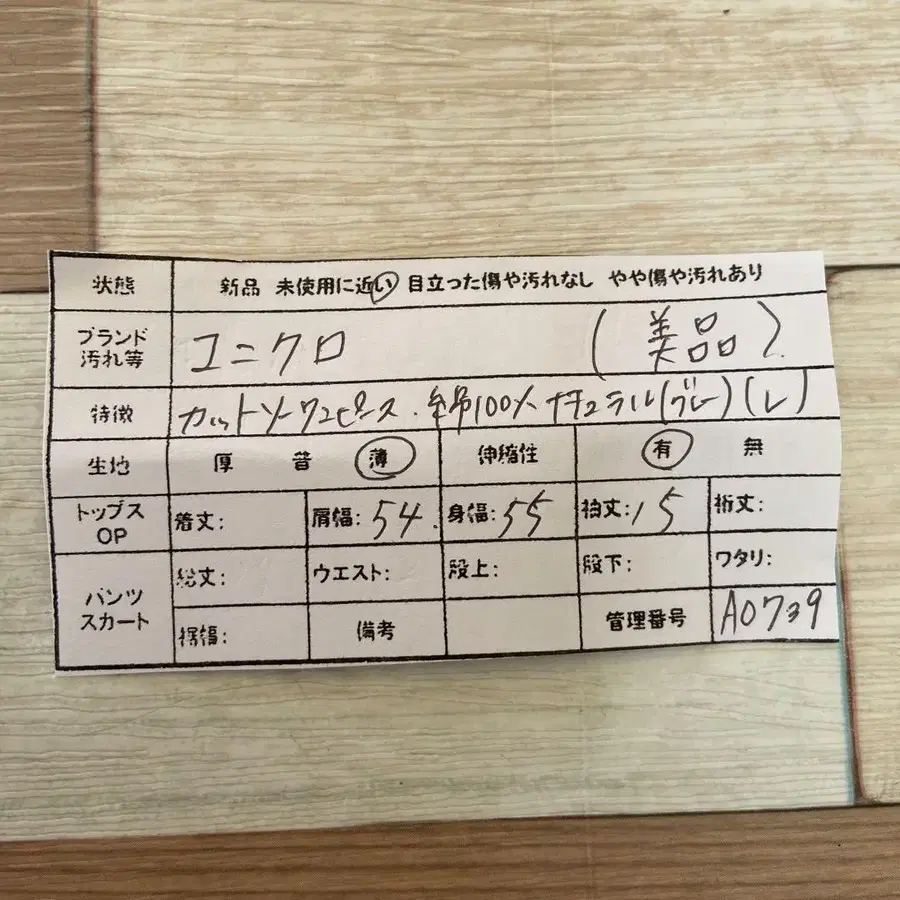 状態 新品 未使用に近い 目立った傷や汚れなし やや傷や汚れあり
ブランド
汚れ等 ユニクロ (美品)
特徴 カットソーワンピース.綿100% ナチュラル(グレー)(L)
生地 厚 普 薄 伸縮性 有 無
トップス
OP 着丈: 肩幅:54. 身幅:55 袖丈:15 裄丈:
パンツ
スカート 総丈: ウエスト: 股上: 股下: ワタリ:
裾幅: 備考 管理番号 A0739